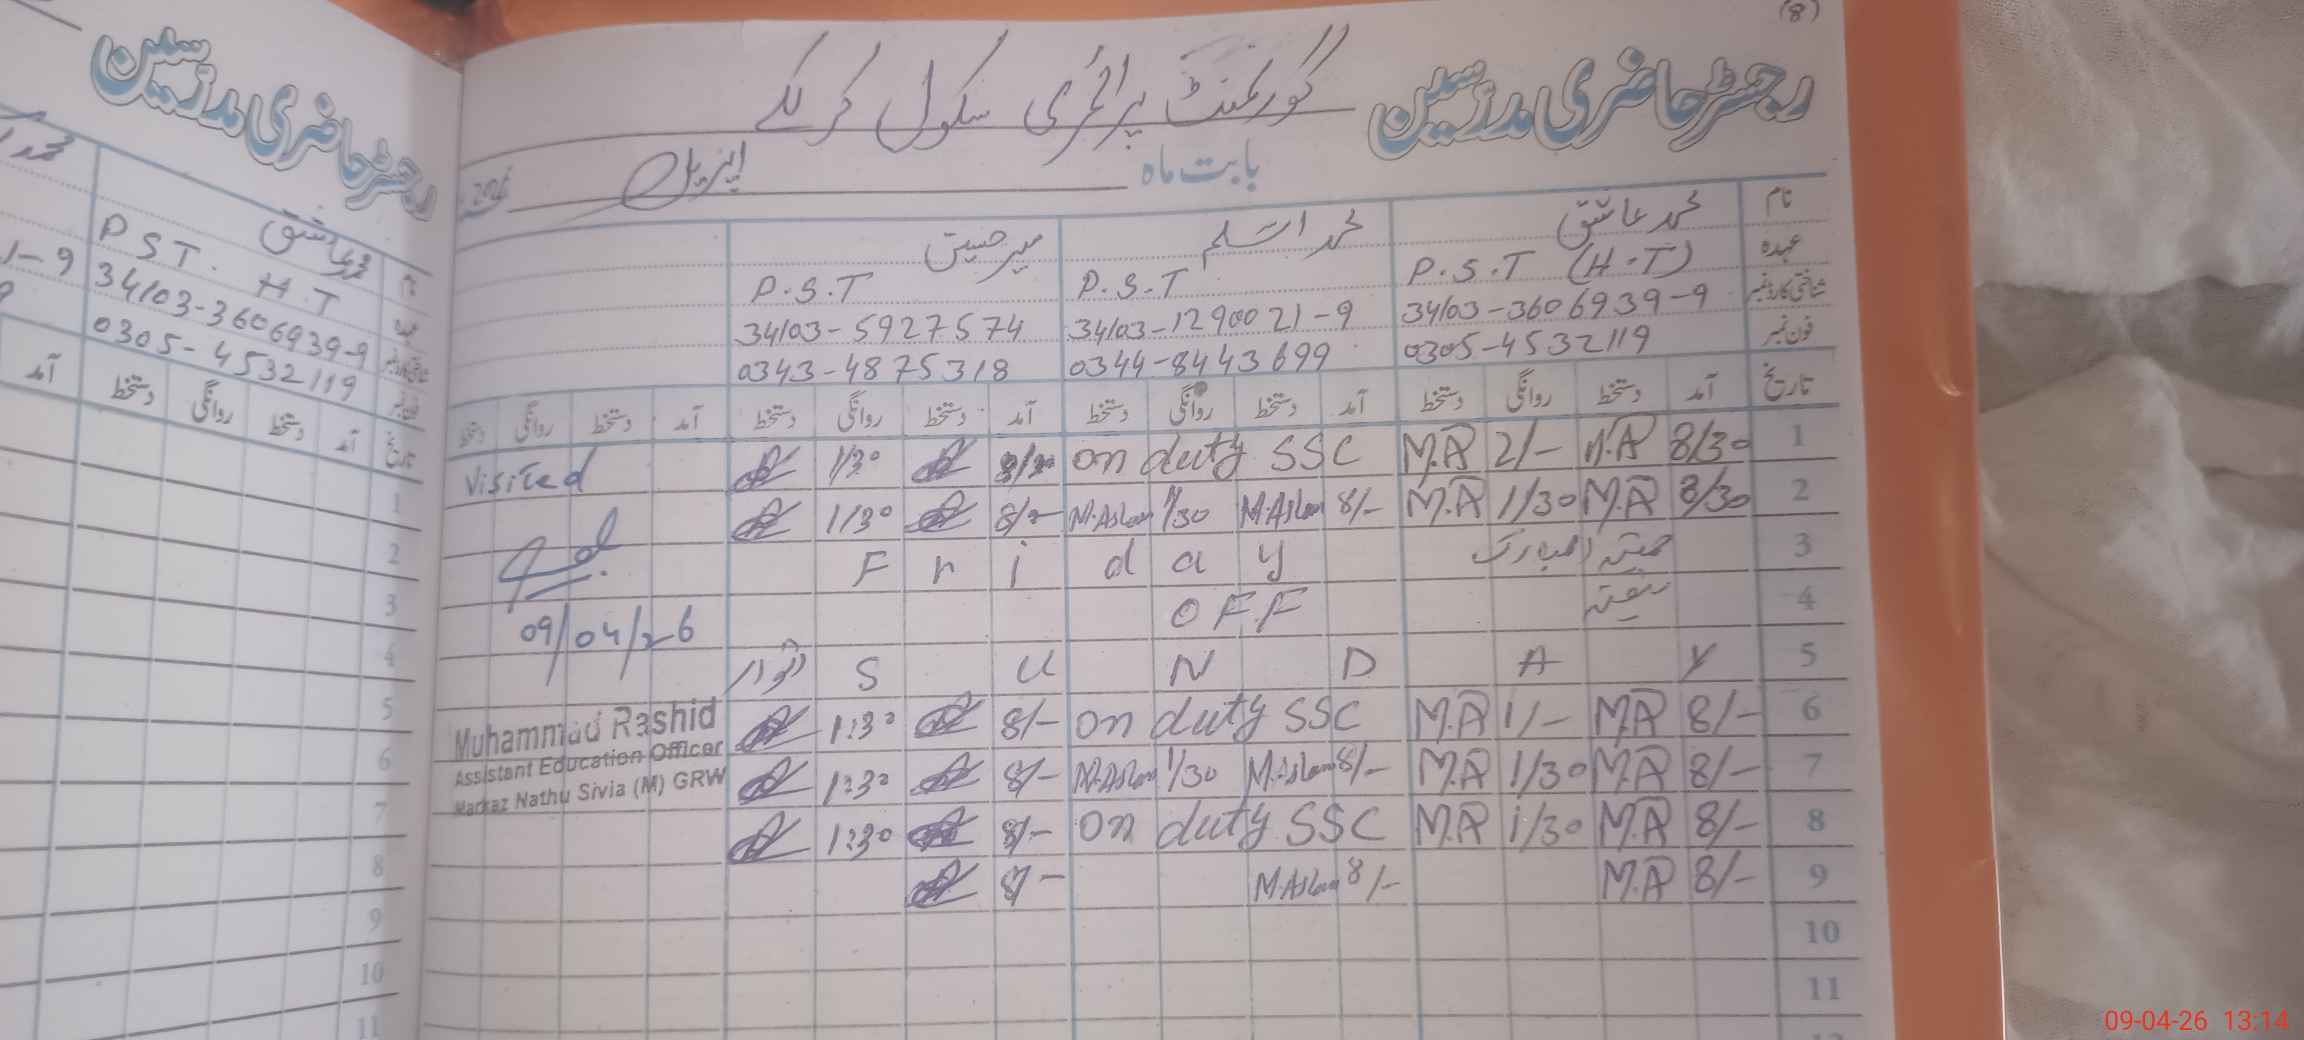 (8)
رجسٹر حاضری مدرسین گورنمنٹ پرائمری سکول
بابت ماہ اپریل
نام محمد عاشق محمد اسلم
عہدہ P.S.T (H.T) P.S.T P.S.T
شناختی کارڈ نمبر 34103-3606939-9 34103-1290021-9 34103-5927574
فون نمبر 0305-4532119 0344-8443699 0343-4875318
تاریخ آمد دستخط روانگی دستخط آمد دستخط روانگی دستخط آمد دستخط روانگی دستخط آمد دستخط روانگی دستخط
1 8/30 M.A 2/- M.A on duty SSC 1/30
2 8/30 M.A 1/30 M.A 8/- M.Aslam 1/30 M.Aslam 8/- 1/30
3 المبارک Friday
4 ہفتہ OFF
5 SUNDAY اتوار
6 8/- M.A 1/- M.A on duty SSC 8/- 1:30
7 8/- M.A 1/30 M.A 8/- M.Aslam 1/30 M.Aslam 8/- 1:30
8 8/- M.A 1/30 M.A on duty SSC 8/- 1:30
9 8/- M.A 8/- M.Aslam 8/-
10
11
visited
09/04/26
Muhammad Rashid
Assistant Education Officer
Markaz Nathu Sivia (M) GRW
رجسٹر حاضری مدرسین
عاشق
P.S.T. H.T
34103-3606939-9
1-9
0305-4532119
تاریخ آمد دستخط روانگی دستخط آمد
1
2
3
4
5
6
7
8
9
10
11
09-04-26 13:14